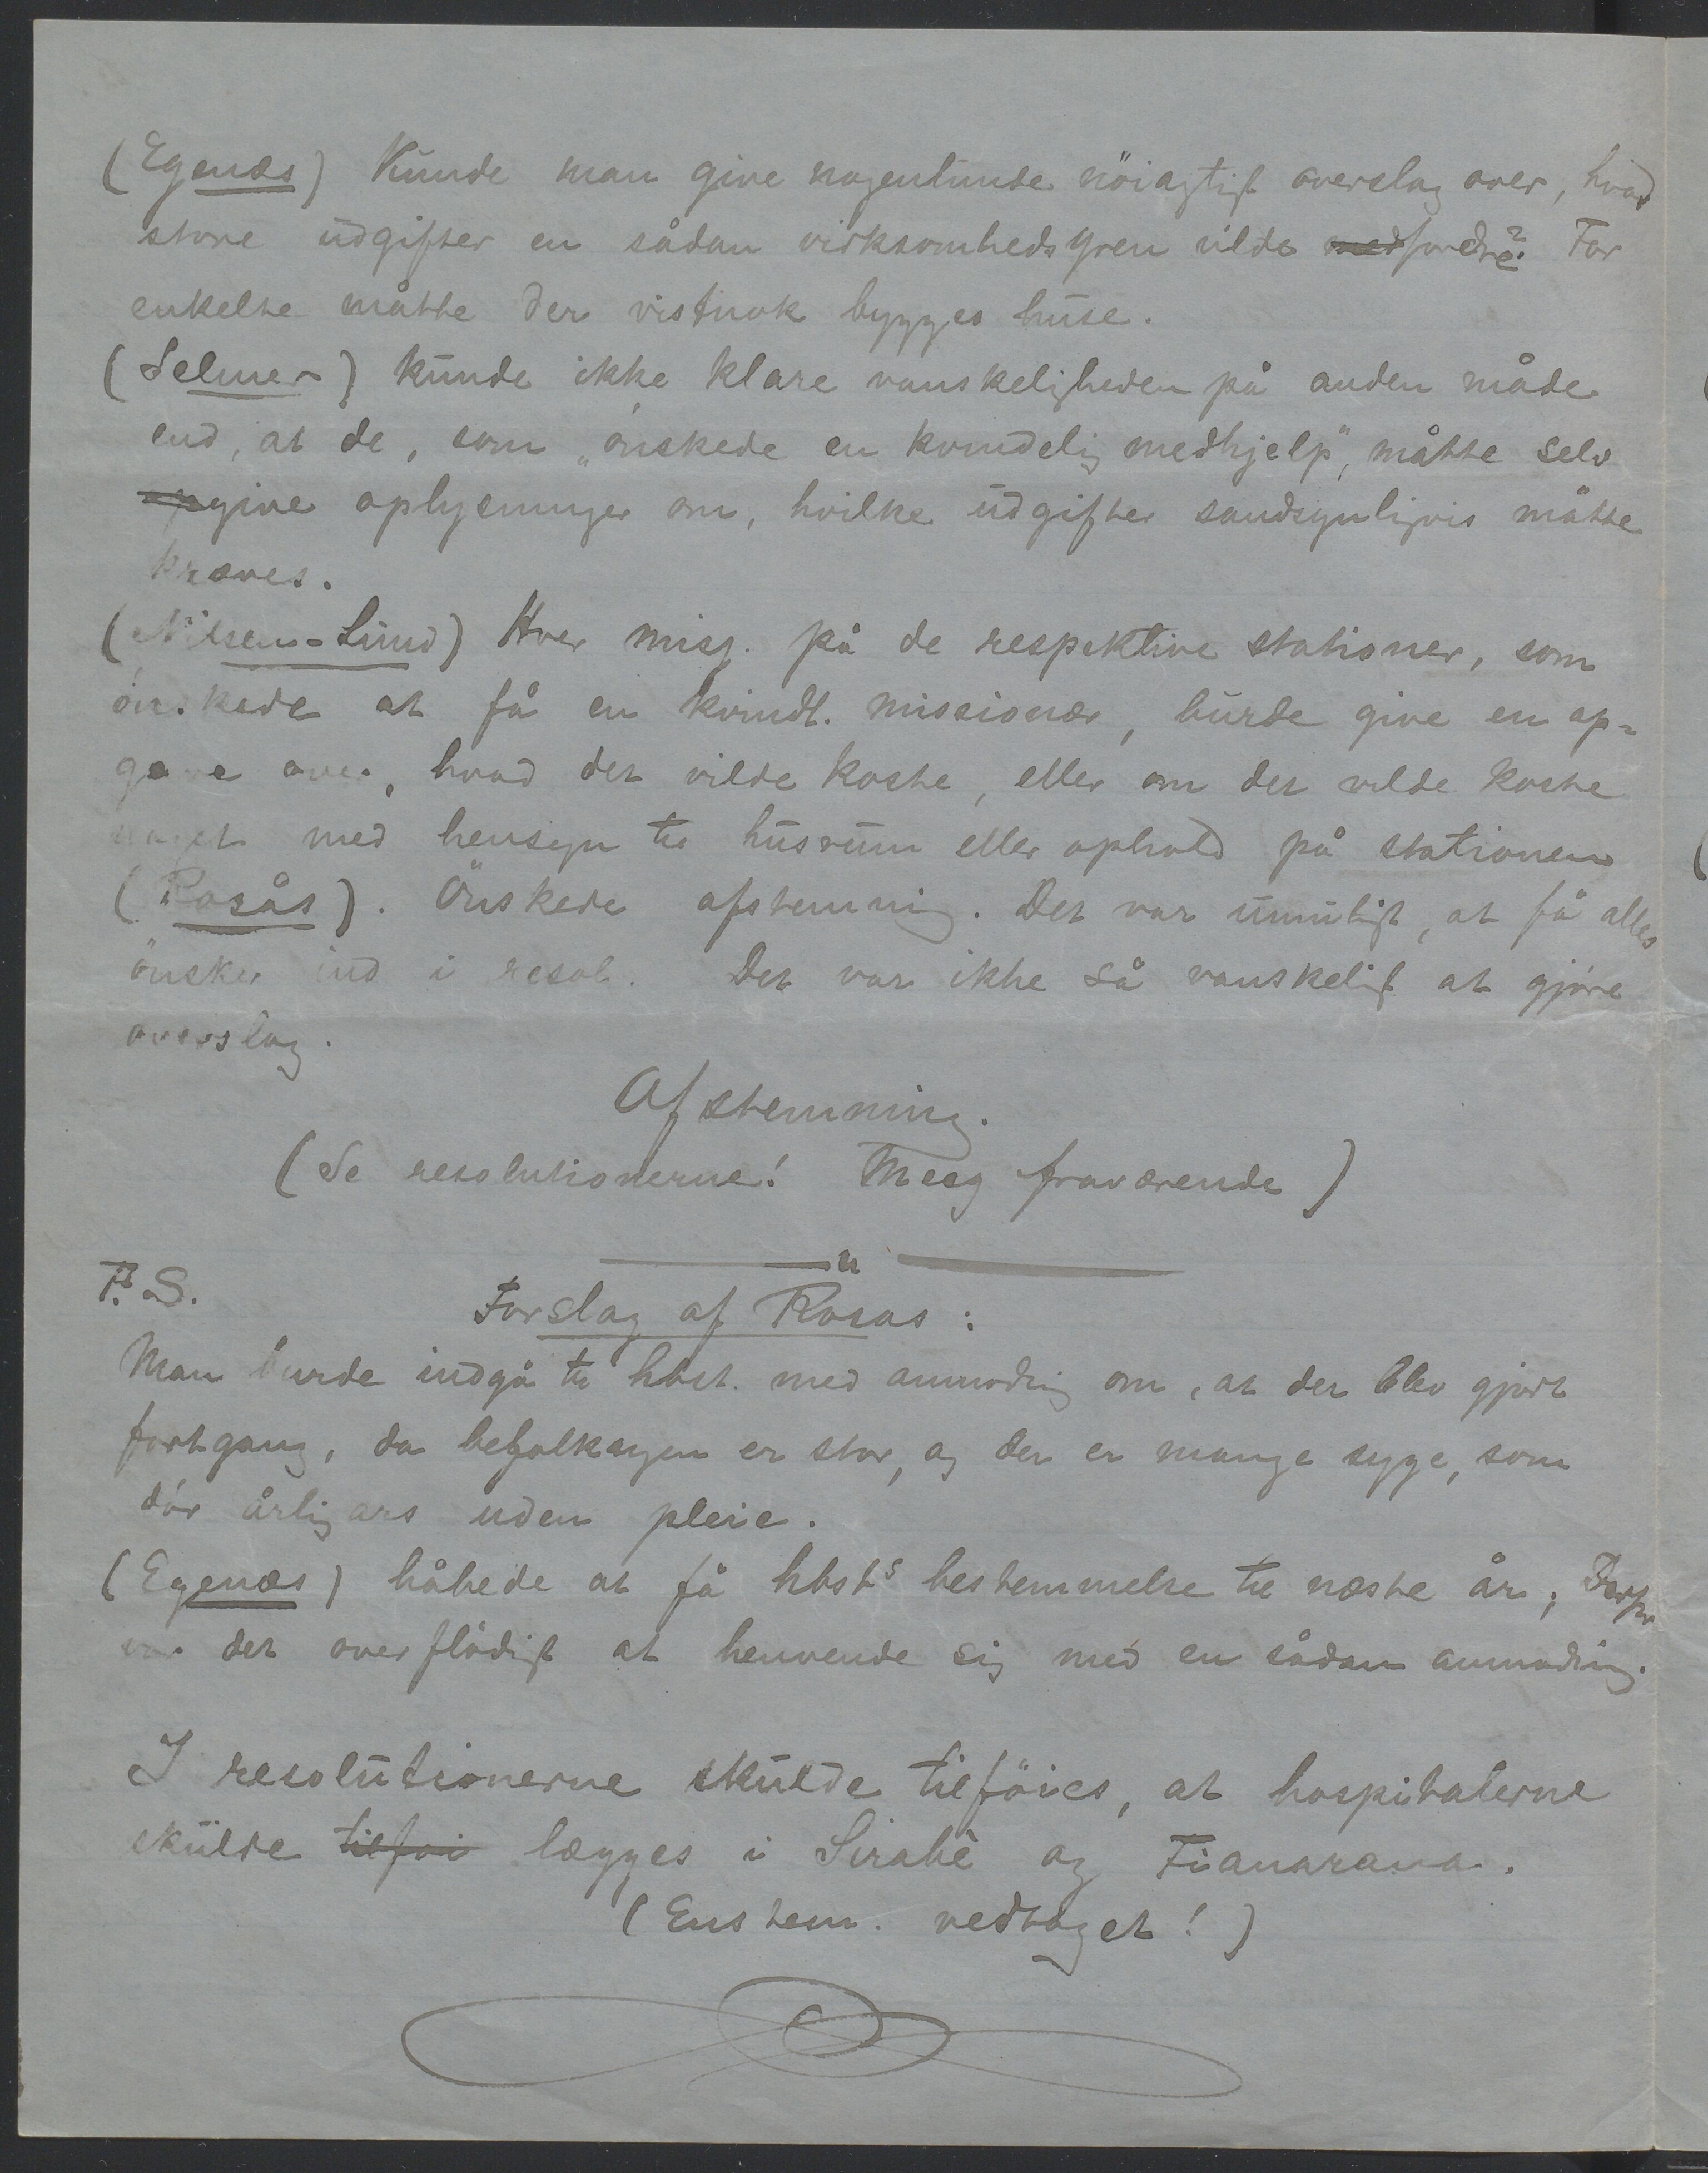 (Egenæs) Kunde man give nogenlunde nöiagtigt overslag over, hvad
store udgifter en sådan virksomhedsgren vilde medfordre? For
enkelte måtte der vistnok bygges huse.
(Selmer) kunde ikke klare vanskeligheden på anden måde
end, at de, som "önskede en kvindelig medhjelp", måtte selv
opgive oplysninger om, hvilke udgifter sandsynligvis måtte
kræves.
(Nilsen-Lund) Hver miss. på de respektive stationer, som
önskede at få en kvindl. missionær, burde give en op-
gave over, hvad det vilde koste, eller om det vilde koste
noget med hensyn til husrum eller ophold på stationen
(Rosås). Önskede afstemning. Det var umuligt, at få alles
önsker ind i resol. Det var ikke så vanskeligt at gjöre
overslag.
Afstemning.
(Se resolutionerne! Meeg fraværende)
P.S.
Forslag af Rosas:
Man burde indgå til hbst. med anmodning om, at der blev gjort
fortgang, da befolkngen er stor, og der er mange syge, som
dör årligars uden pleie.
(Egenæs) håbede at få hbst's bestemmelse til næste år; Derfor
var det overflödigt at henvende sig med en sådan anmodning.
I resolutionerne skulde tilföies, at hospitalerne
skulde tilföi lægges i Sirabe og Fianarana.
(Enstem. vedtaget!)